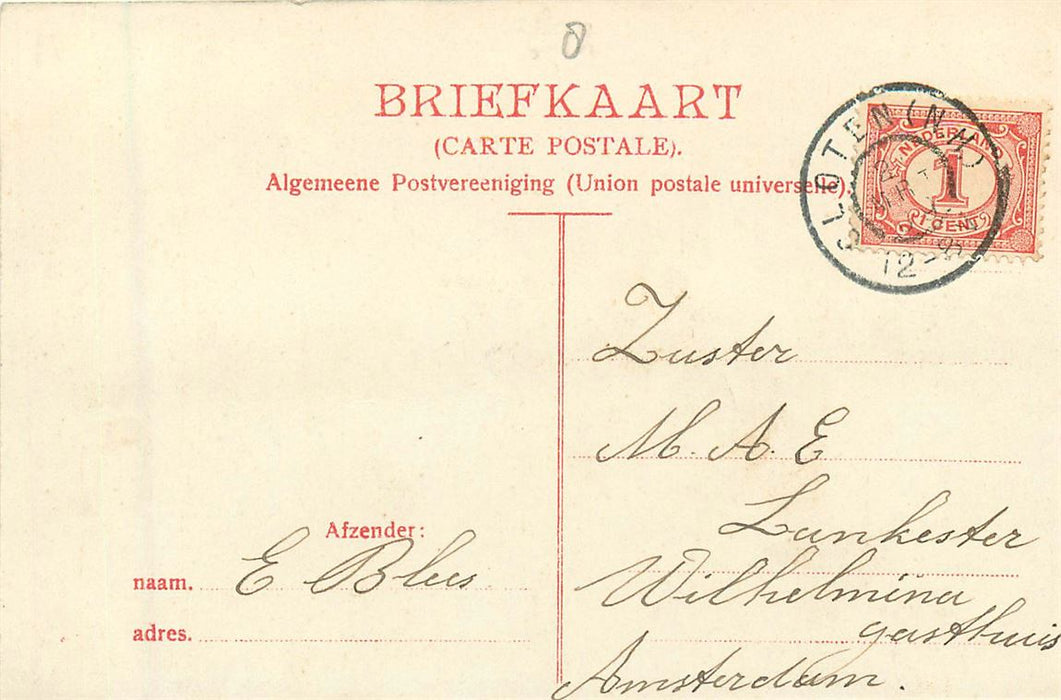 BRIEFKAART
(CARTE POSTALE).
Algemeene Postvereeniging (Union postale universelle).
SLOTEN (N.H.)
12-
NEDERLAND
1
1 CENT
Zuster
M. A. E
Lankester
Wilhelmina
gasthuis
Amsterdam.
Afzender:
naam. E Blees
adres.